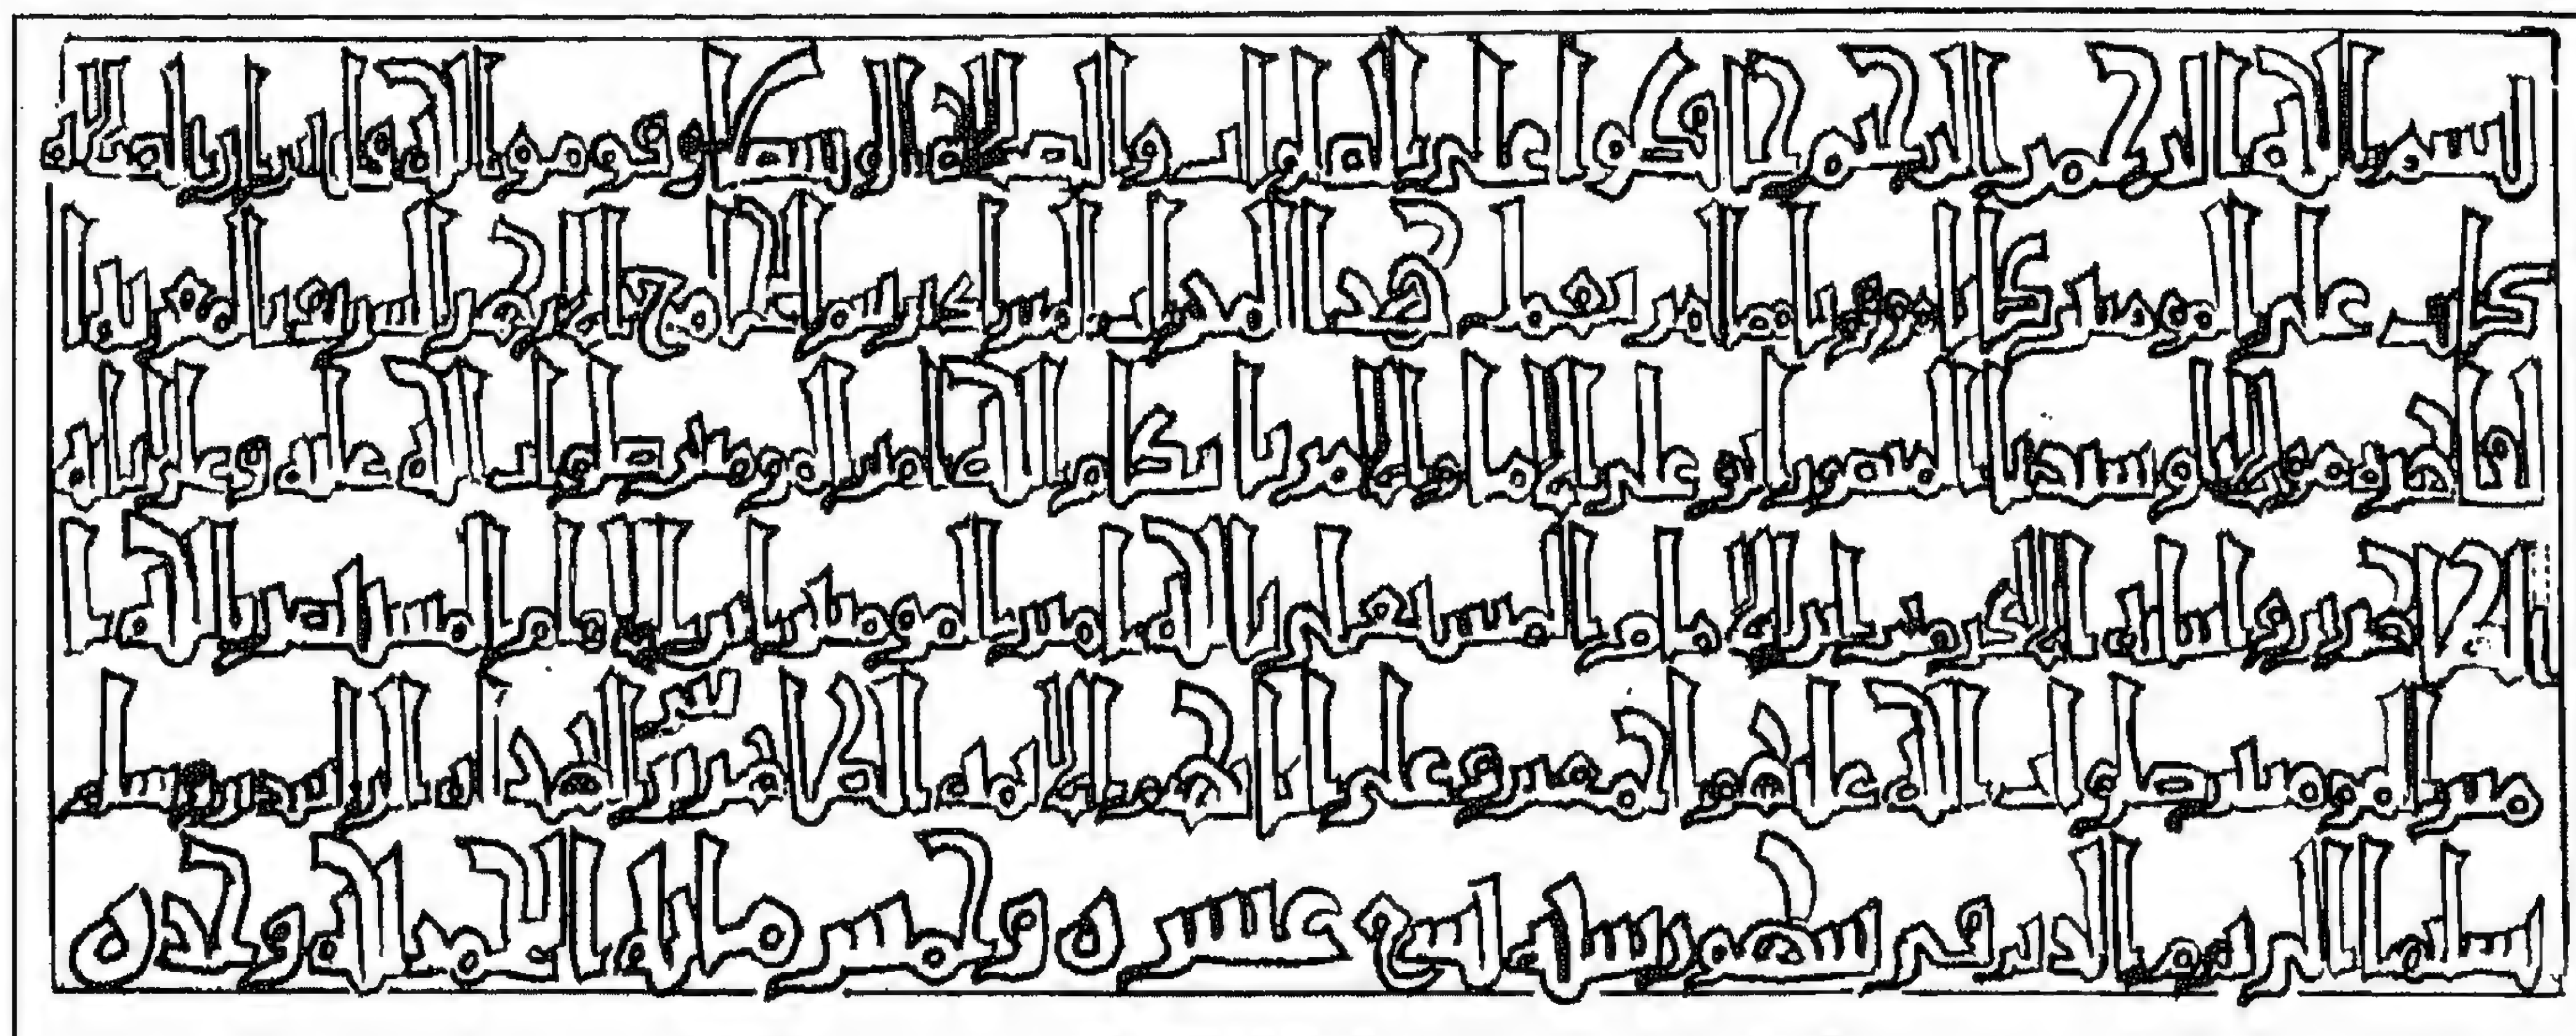 بسم الله الرحمن الرحيم حافظوا على الصلوات والصلاة الوسطى وقوموا لله قانتين إن الصلاة
كانت على المؤمنين كتابا موقوتا مما أمر بعمل هذا المحراب المبارك برسم الجامع الأزهر الشريف بالمعزية ا
لقاهرة مولانا وسيدنا المنصور أبو علي الإمام الآمر بأحكام الله أمير المؤمنين صلوات الله عليه وعلى آبائه
الطاهرين وأبنائه الأكرمين ابن الإمام المستعلي بالله أمير المؤمنين ابن الإمام المستنصر بالله ا
مير المؤمنين صلوات الله عليهم أجمعين وعلى آبائهم الأئمة الطاهرين بني الهداة الراشدين وسلم
تسليما إلى يوم الدين في شهور سنة تسع عشرة وخمس مائة الحمد لله وحده